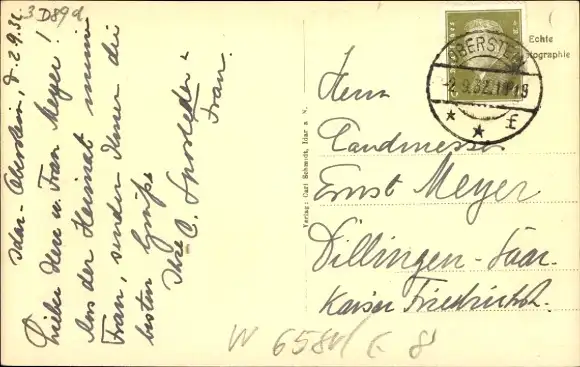 3 D89d
Idar-Oberstein, d. 2.9.32
Lieber Herr u. Frau Meyer!
Aus der Heimat meiner
Frau, senden Ihnen die
besten Grüße
Ihre C. Sporleder u
Frau.
Verlag: Carl Schmidt, Idar a. N.
Echte
Photographie
OBERSTEIN
-2.9.32.
* * f
Herrn
Landmesser
Ernst Meyer
Dillingen-Saar.
Kaiser Friedrichstr.
W 6580